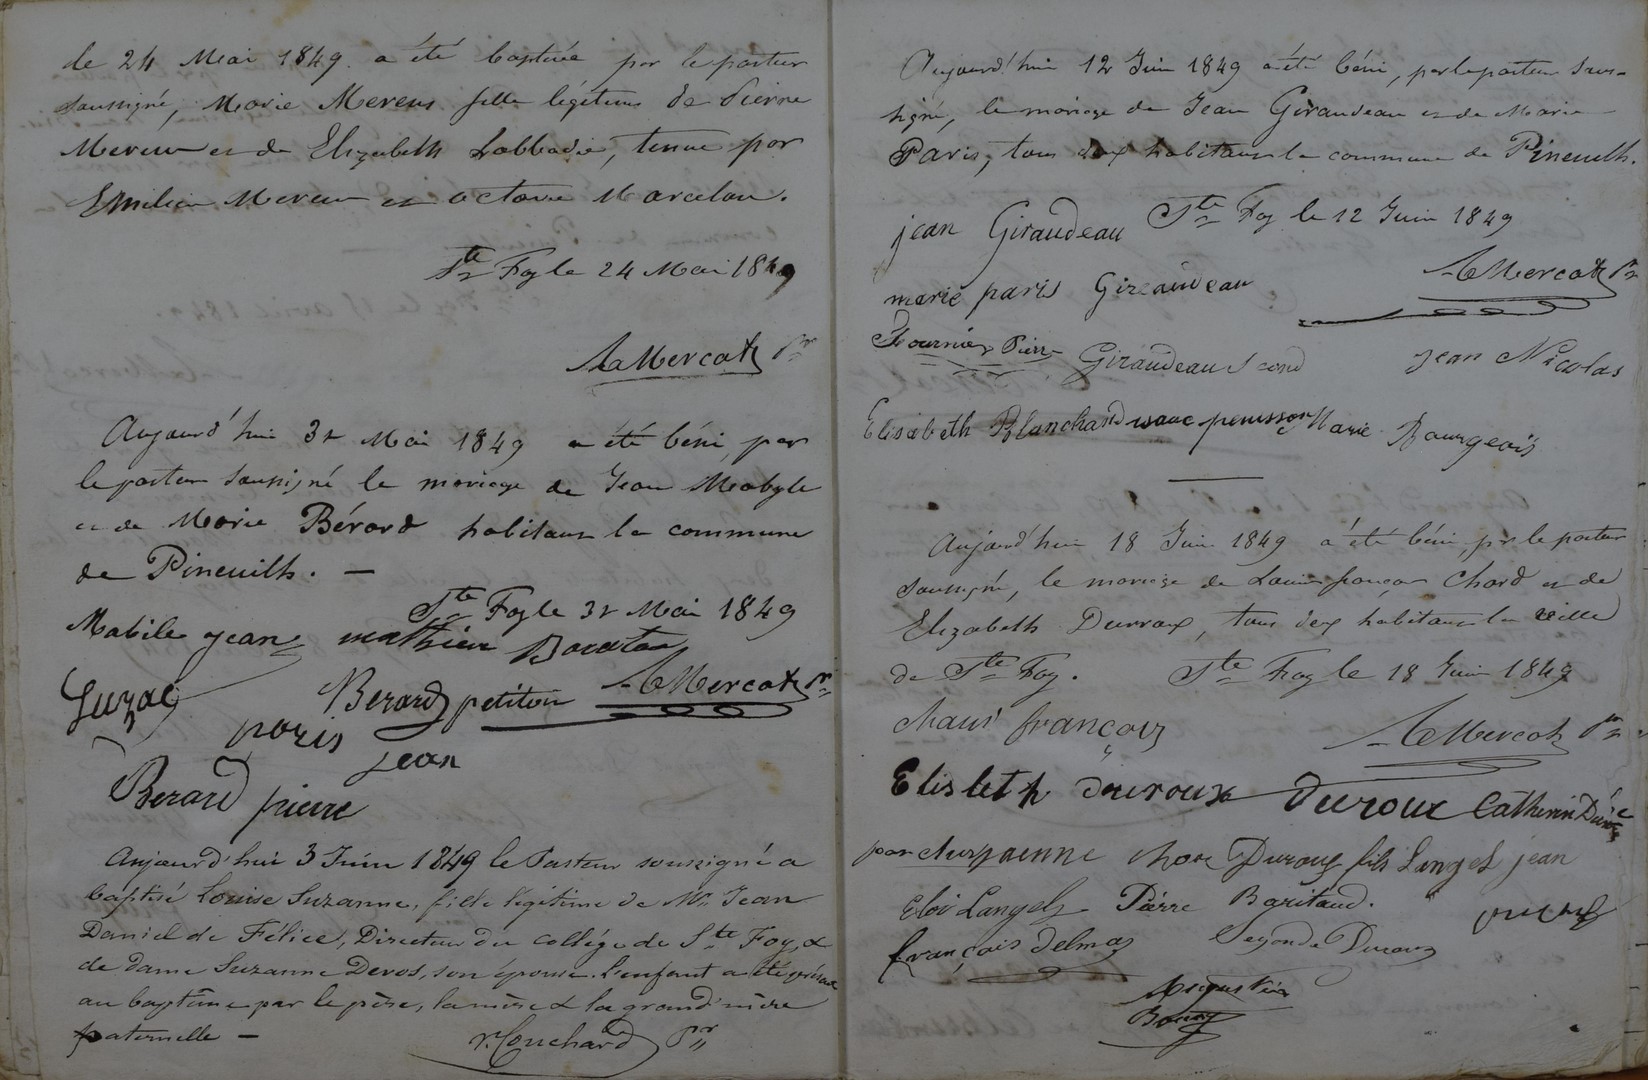 de 24 Mai 1849 a été baptisée par le pasteur
soussigné, Marie Mereus fille légitime de Pierre
Mereus et de Elizabeth Labbadie, tenue par
Emilien Mereus et Octavie Marcelau.
Ste Foy le 24 Mai 1849
A Mercat Pr
Aujourd'hui 31 Mai 1849 a été béni, par
le pasteur soussigné le mariage de Jean Mabyle
et de Marie Bérard habitans la commune
de Pineuilh. —
Ste Foy le 31 Mai 1849
Mabile jean mathieu
Guzac Berard petiton A Mercat Pr
paris jean
Berard pierre
Aujourd'hui 3 Juin 1849 le Pasteur soussigné a
baptisé Louise Suzanne, fille légitime de Mr Jean
Daniel de Félice, Directeur du collège de Ste Foy, &
de dame Suzanne Devos, son épouse. L'enfant a été présenté
au baptême par le père, la mère & la grand'mère
paternelle —
Pr
Aujourd'hui 12 Juin 1849 a été béni, par le pasteur sous-
signé, le mariage de Jean Giraudeau et de Marie
Paris, tous deux habitans la commune de Pineuilh.
Ste Foy le 12 Juin 1849
jean Giraudeau
A Mercat Pr
marie paris Giraudeau
Fournier Pierre Giraudeau Second jean Nicolas
Elisabeth Blanchard isaac penisson Marie Bourgeois
Aujourd'hui 18 Juin 1849 a été béni, par le pasteur
soussigné, le mariage de Louis françois Chard et de
Elizabeth Durroux, tous deux habitans la ville
de Ste Foy. Ste Foy le 18 Juin 1849
françois
A Mercat Pr
Elisbeth duroux Duroux Catherine
Duroux fils Langel jean
Eloi Langel Pierre
françois delmas Segonde Duroux